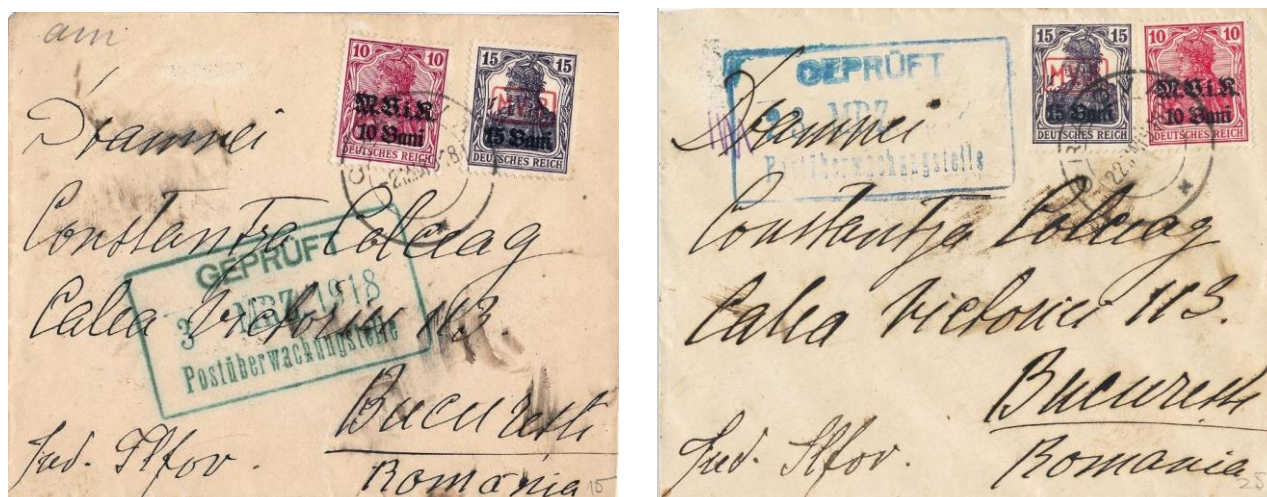 am
10 10
M.V.i.R.
10 Bani
DEUTSCHES REICH
15 15
MViR
15 Bani
DEUTSCHES REICH
Doamnei
Constantza Colceag
GEPRÜFT
3 MRZ 1918
Postüberwachungstelle
Calea Victoriei 113.
Bucuresti
Jud. Ilfov.
România
15
GEPRÜFT
23 MRZ
Postüberwachungstelle
15 15
MViR
15 Bani
DEUTSCHES REICH
10 10
M.V.i.R.
10 Bani
DEUTSCHES REICH
Doamnei
Constantza Colceag
Calea Victoriei 113.
Bucuresti
Jud. Ilfov.
România
25